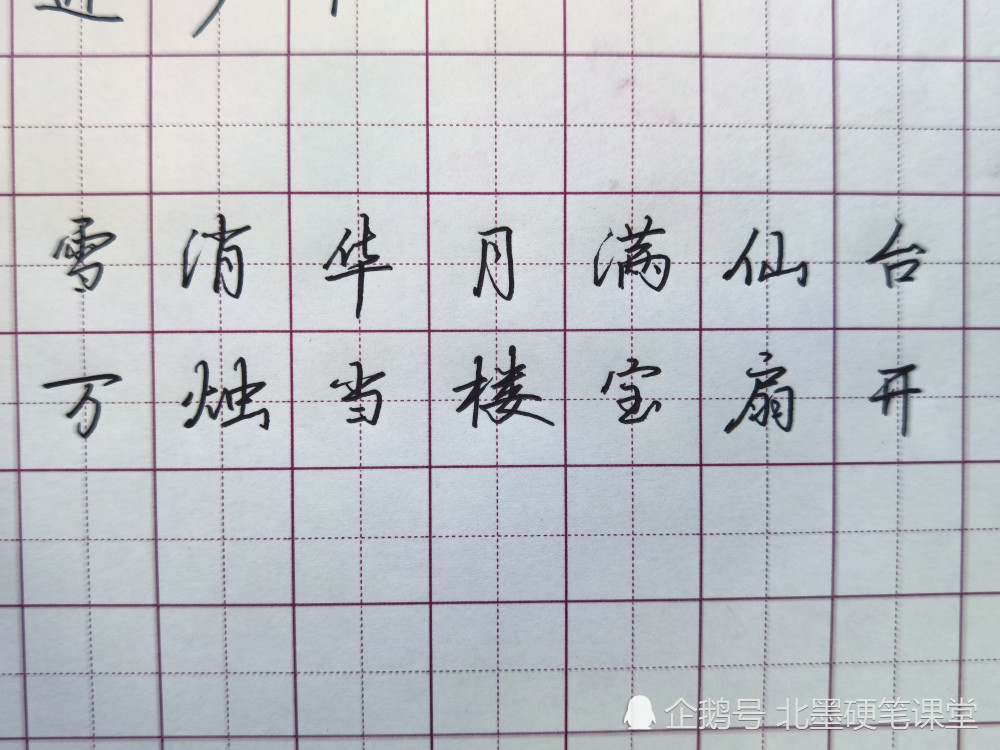 雪消华月满仙台
万烛当楼宝扇开
企鹅号 北墨硬笔课堂